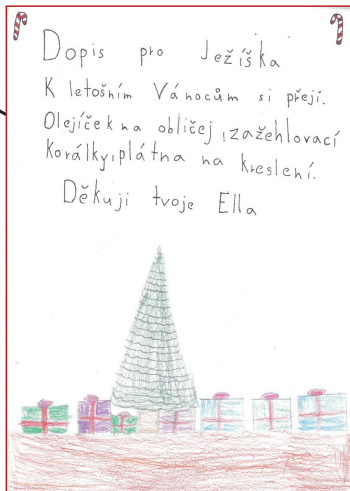 Dopis pro Ježíška
K letošním Vánocům si přeji.
Olejíček na obličej, zažehlovací
Korálky, plátna na kreslení.
Děkuji tvoje Ella